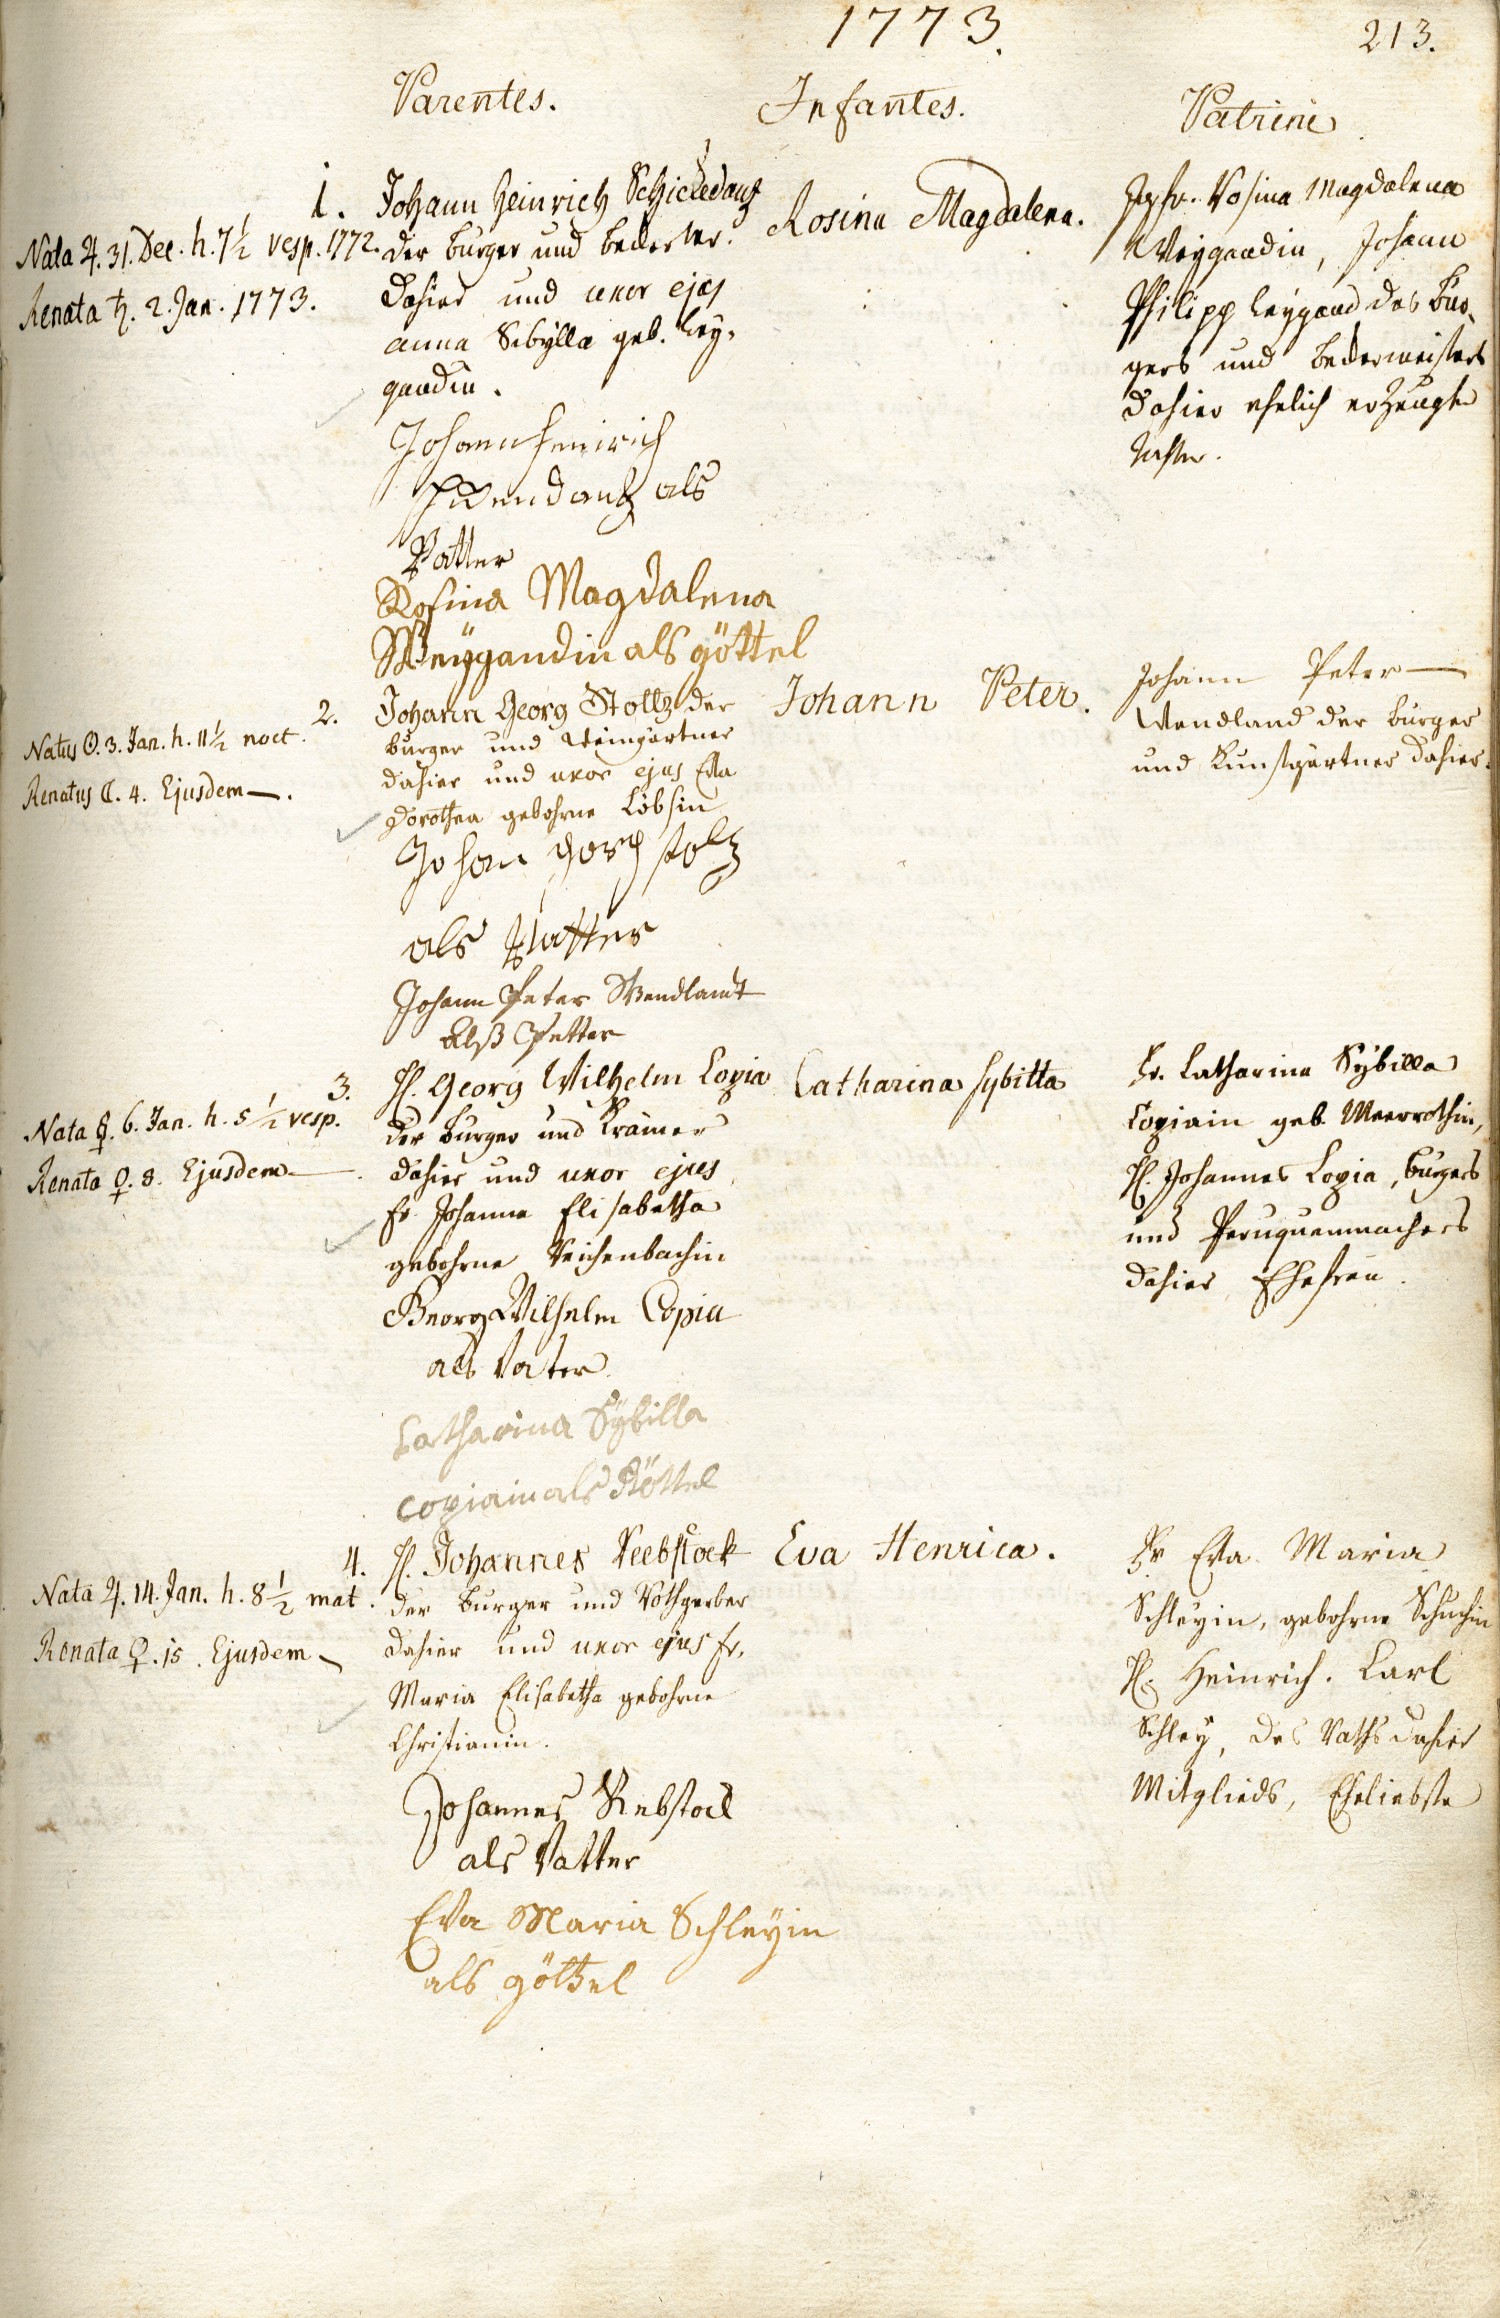 1773.
213.
Parentes.
Infantes.
Patrini
1.
Nata ♃. 31. Dec. h. 7½ vesp. 1772.
Renata ♄. 2. Jan. 1773.
Johann Heinrich Schickedantz
der burger und becker
dahier und uxor ejus
anna Sibÿlla geb. Weÿ-
gandin.
Johann Heinrich
als
Vatter
Rosina Magdalena
Weÿgandin als göttel
Rosina Magdalena.
Jgfr. Rosina Magdalena
Weygandin, Johann
Philipp Weÿgand des bur-
gers und beckermeisters
dahier ehelich erzeugte
Tochter.
2.
Natus ☉. 3. Jan. h. 11½ noct.
Renatus ☾. 4. Ejusdem —.
Johann Georg Stoltz der
burger und Weingärtner
dahier und uxor ejus Eva
Dorothea gebohrne Löbsin
Johan Gorg stolz
als Vatter
Johann Peter Wendlandt
Alß Petter
Johann Peter.
Johann Peter —
Wendland der burger
und Kunstgärtner dahier.
3.
Nata ☿. 6. Jan. h. 5½ vesp.
Renata ♀. 8. Ejusdem —.
H. Georg Wilhelm Copia
der burger und Krämer
dahier und uxor ejus
fr. Johanna Elisabetha
gebohrne Reichenbachin
Georg Wilhelm Copia
als Vater
Catharina Sÿbilla
copiain als Göttel
Catharina Sybilla
Fr. Catharina Sÿbilla
Copiain geb. Meerrothin,
H. Johannes Copia, burgers
und Peruquenmachers
dahier Ehefrau.
4.
Nata ♃. 14. Jan. h. 8½ mat.
Renata ♀. 15. Ejusdem —
H. Johannes Reebstock
der burger und Rothgerber
dahier und uxor ejus fr.
Maria Elisabetha gebohrne
Christianin.
Johannes Rebstock
als Vatter
Eva Maria Schleÿin
als göttel
Eva Henrica.
Fr. Eva Maria
Schleÿin, gebohrne Schuchin
H. Heinrich Carl
Schleÿ, des Raths dahier
Mitglieds, Eheliebste